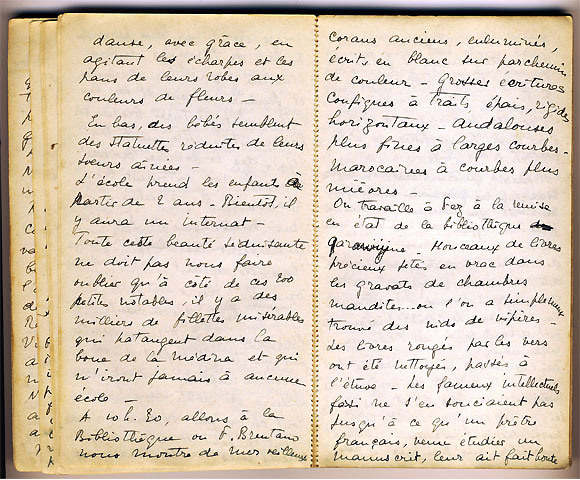 danse, avec grâce, en
agitant les écharpes et les
pans de leurs robes aux
couleurs de fleurs –
En bas, des bébés semblent
des statuettes réduites de leurs
soeurs aînées –
L'école prend les enfants à
partir de 2 ans – Bientôt, il
y aura un internat –
Toute cette beauté séduisante
ne doit pas nous faire
oublier qu'à côté de ces 200
petites notables, il y a des
milliers de fillettes misérables
qui patangent dans la
boue de la médina et qui
n'iront jamais à aucune
école –
A 10h. 20, allons à la
Bibliothèque où F. Brentano
nous montre de merveilleux
corans anciens, enluminés,
écrits en blanc sur parchemin
de couleur – Grosses écritures
coufiques à traits épais, rigides
horizontaux – andalouses
plus fines à larges courbes –
marocaines à courbes plus
mièvres –
On travaille à Fez à la remise
en état de la bibliothèque
Monceaux de livres
précieux jetés en vrac dans
les gravats de chambres
maudites... où l'on a simplement
trouvé des nids de vipères –
Les livres rongés par les vers
ont été nettoyés, passés à
l'étuve – Les fameux intellectuels
fasi ne s'en souciaient pas
jusqu'à ce qu'un prêtre
français, venu étudier un
manuscrit, leur ait fait honte